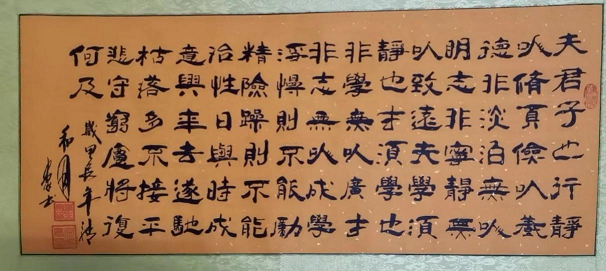 夫君子也行靜
以脩身儉以養
德非淡泊無以
明志非寧靜無
以致遠夫學須
靜也才須學也
非學無以廣才
非志無以成學
慢則不能勵
精險躁則不能
治性日與時成
意與年去遂馳
枯落多不接平
悲守窮廬將復
何及
歲甲辰年